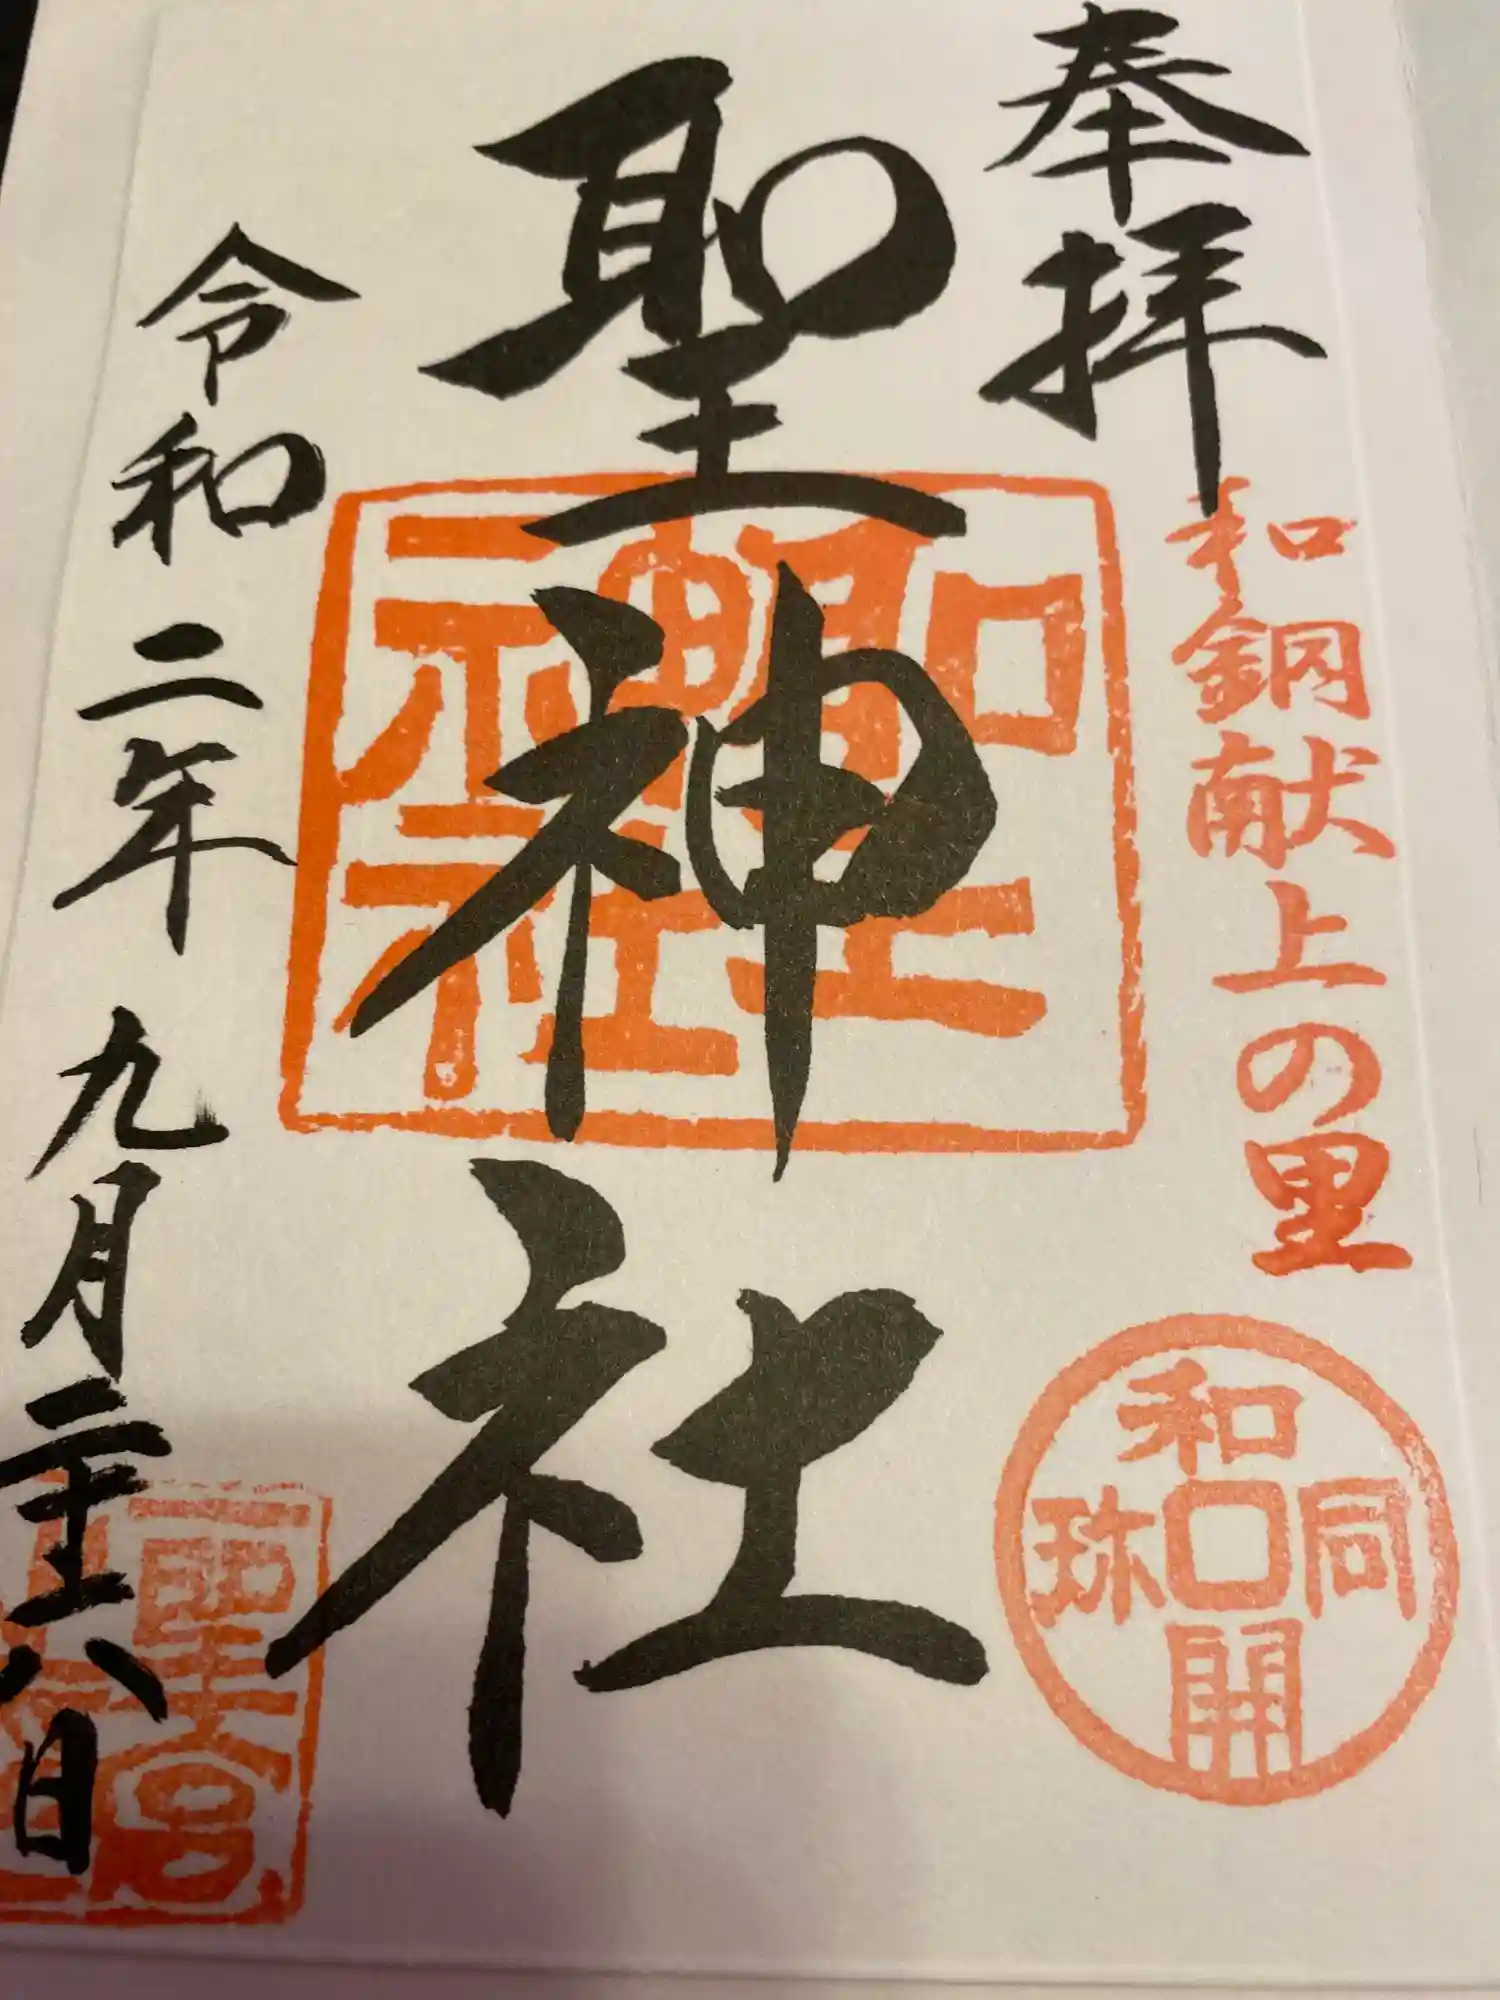 奉拝
和銅献上の里
和同開珎
聖神社
聖神社
令和二年九月二十八日